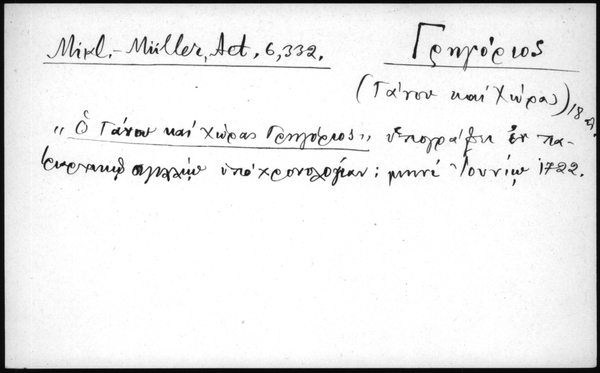 Mikl.-Müller, Act, 6,332.
Γρηγόριος
(Γάνου καί Χώρας) 18
„ Ὁ Γάνου καί Χώρας Γρηγόριος „ ὑπογράφει ἐν πα-
τριαρχικῷ ὑπό χρονολογίαν: μηνί Ἰουνίῳ 1722.